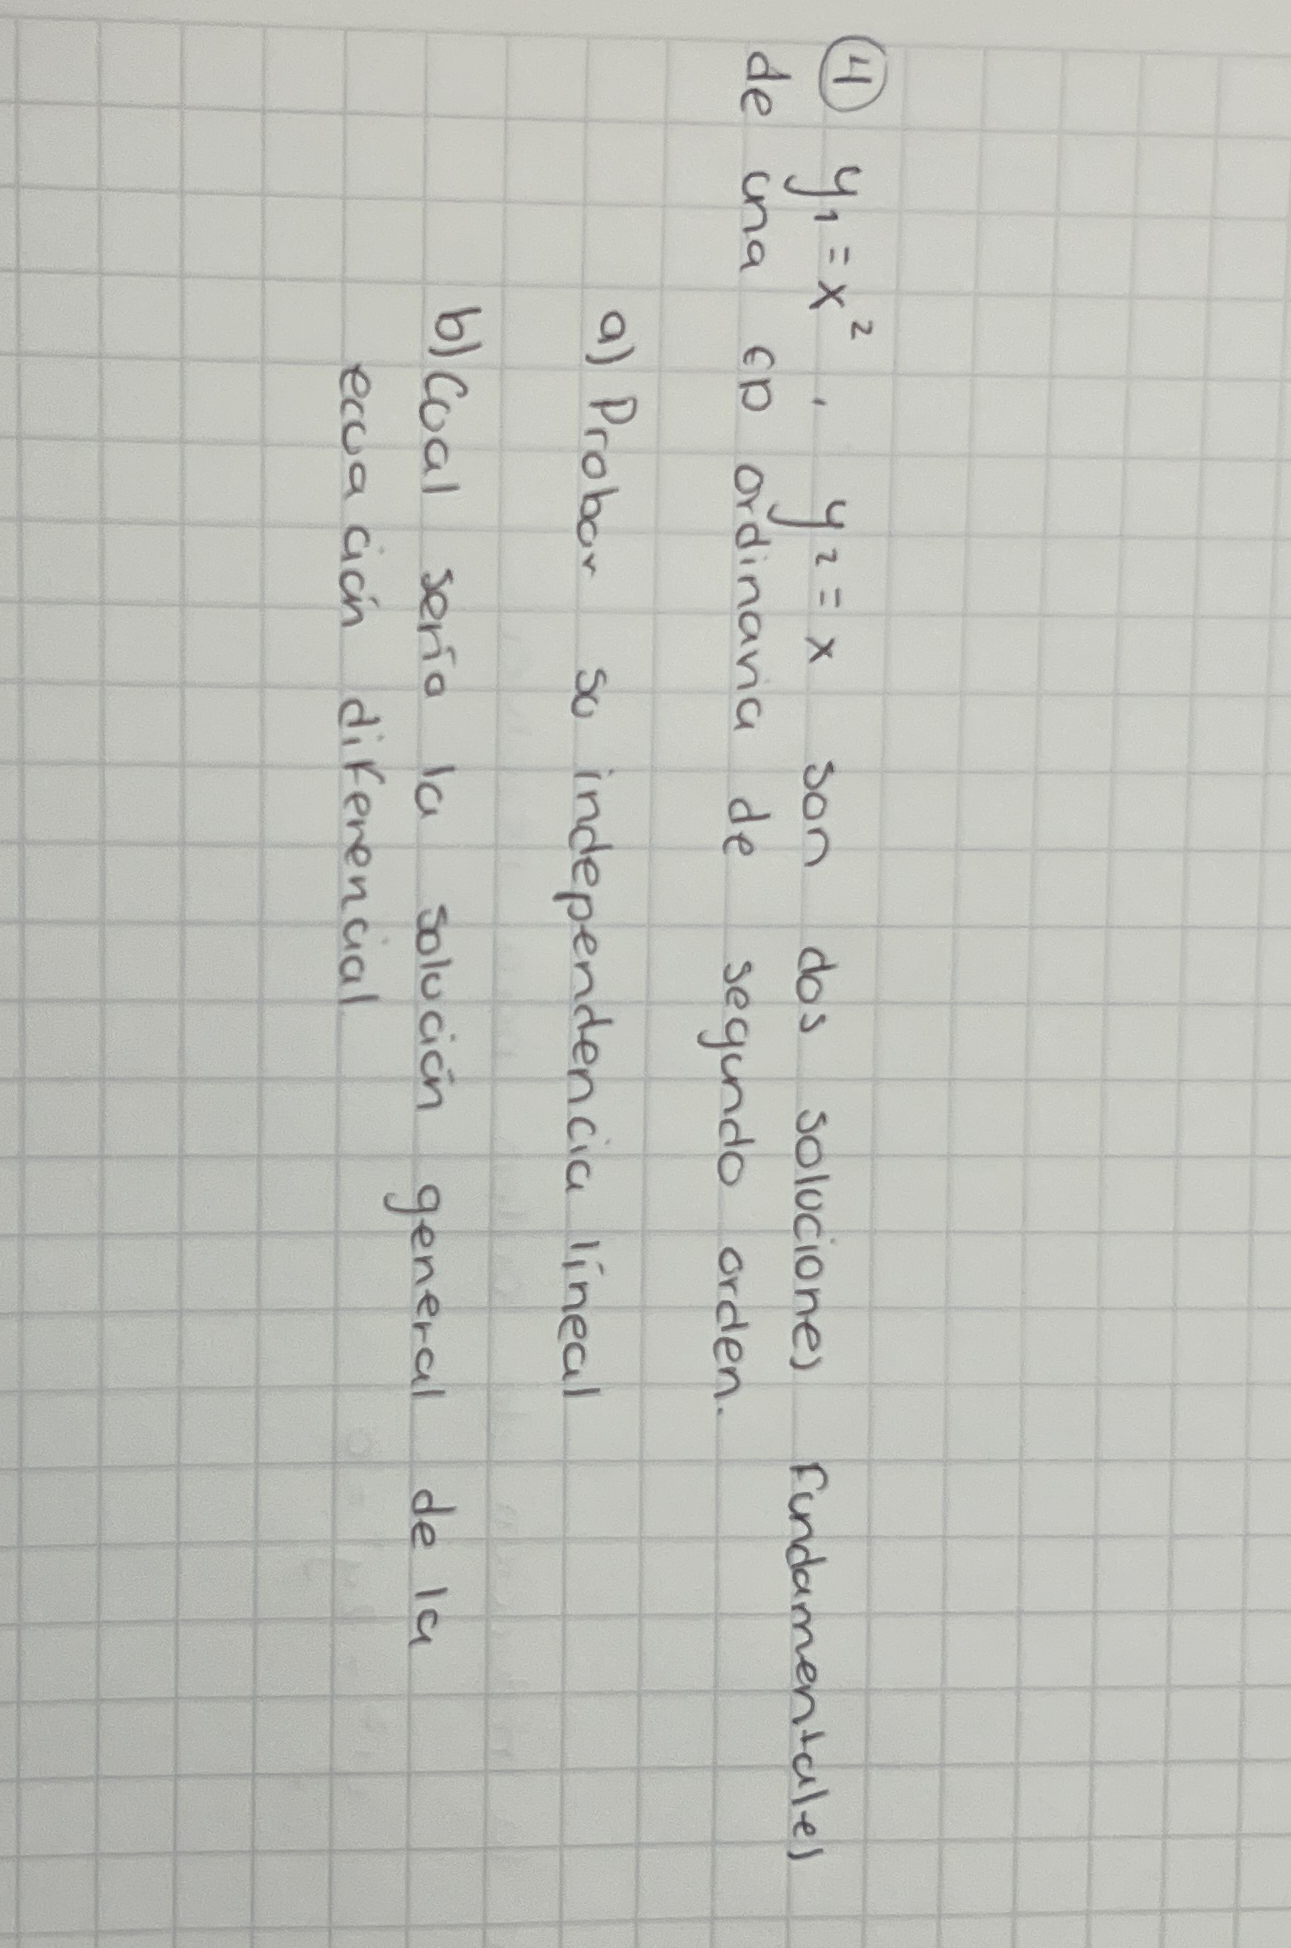 ④ y₁ = x² , y₂ = x son dos soluciones fundamentales
de una ED ordinaria de segundo orden.
a) Probar su independencia líneal
b) Cual sería la solución general de la
ecuación diferencial